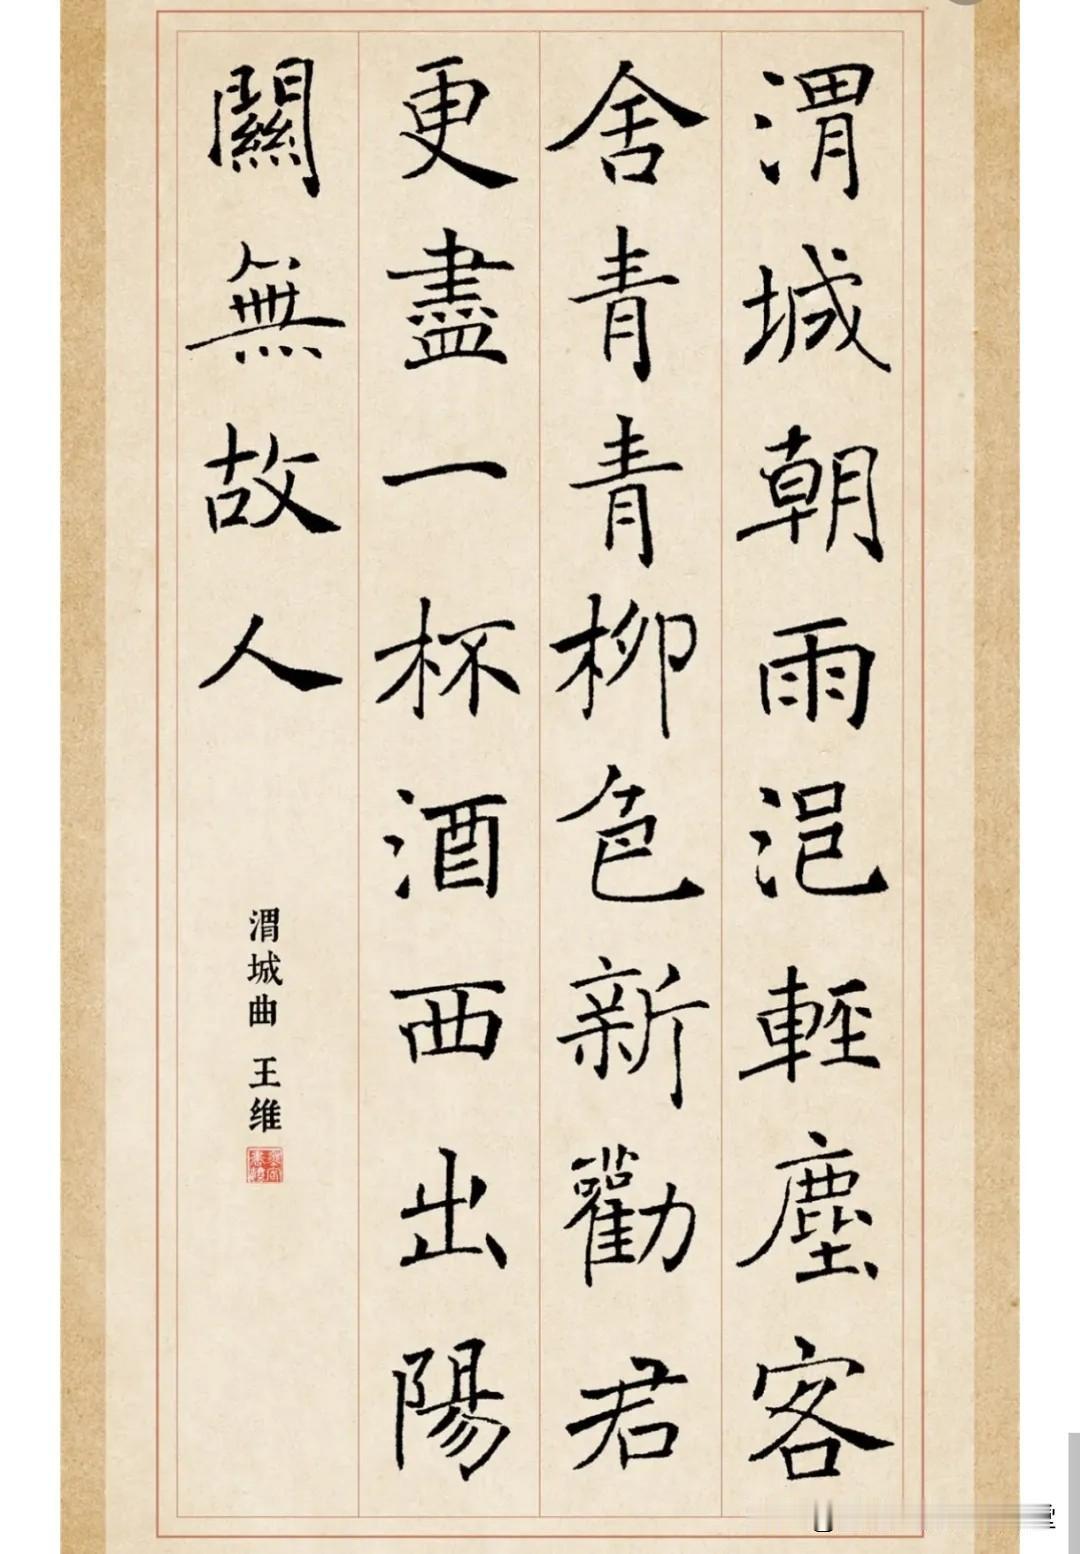 渭城朝雨浥輕塵客
舍青青柳色新勸君
更盡一杯酒西出陽
關無故人
渭城曲 王维